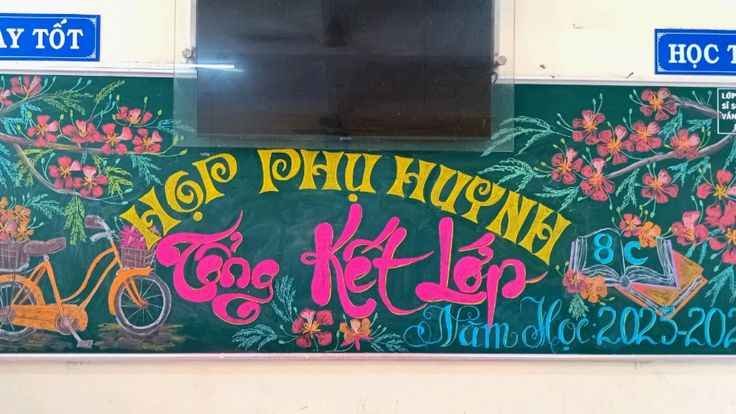 AY TỐT
HỌC T
LỚP
SĨ S
VẮN
HỌP PHỤ HUYNH
Tổng Kết Lớp
8 C
Năm Học: 2025-202